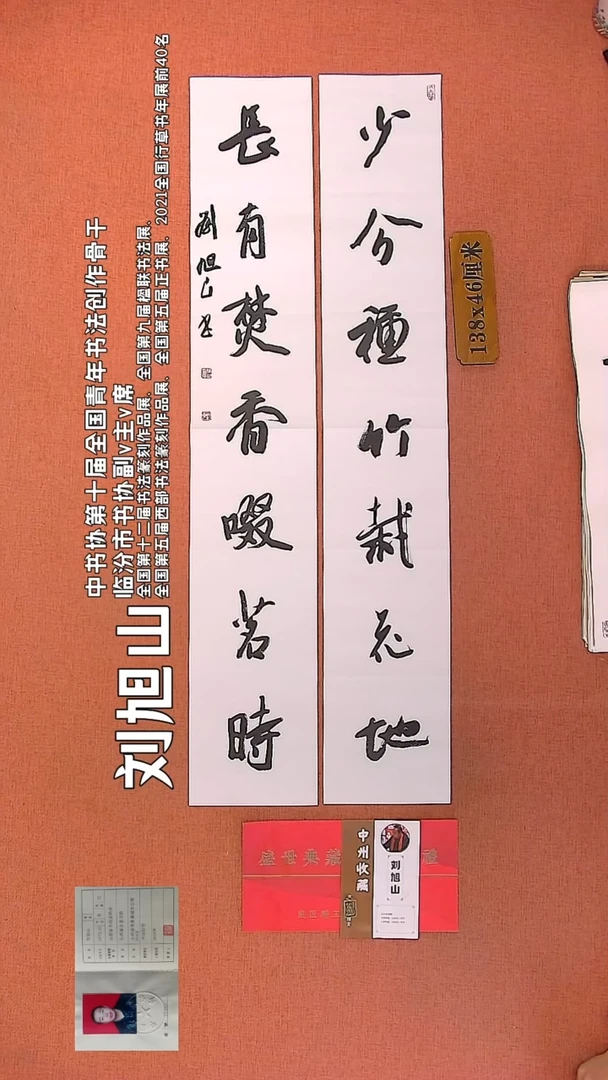 少分種竹栽花地
長有焚香啜茗時
刘旭山书
138x46厘米
中书协第十届全国青年书法创作骨干
临汾市书协副v主v席
全国第十二届书法篆刻作品展、全国第九届楹联书法展、
全国第五届西部书法篆刻作品展、全国第五届正书展、2021全国行草书年展前40名
刘旭山
盛世典藏
中州收藏
刘旭山